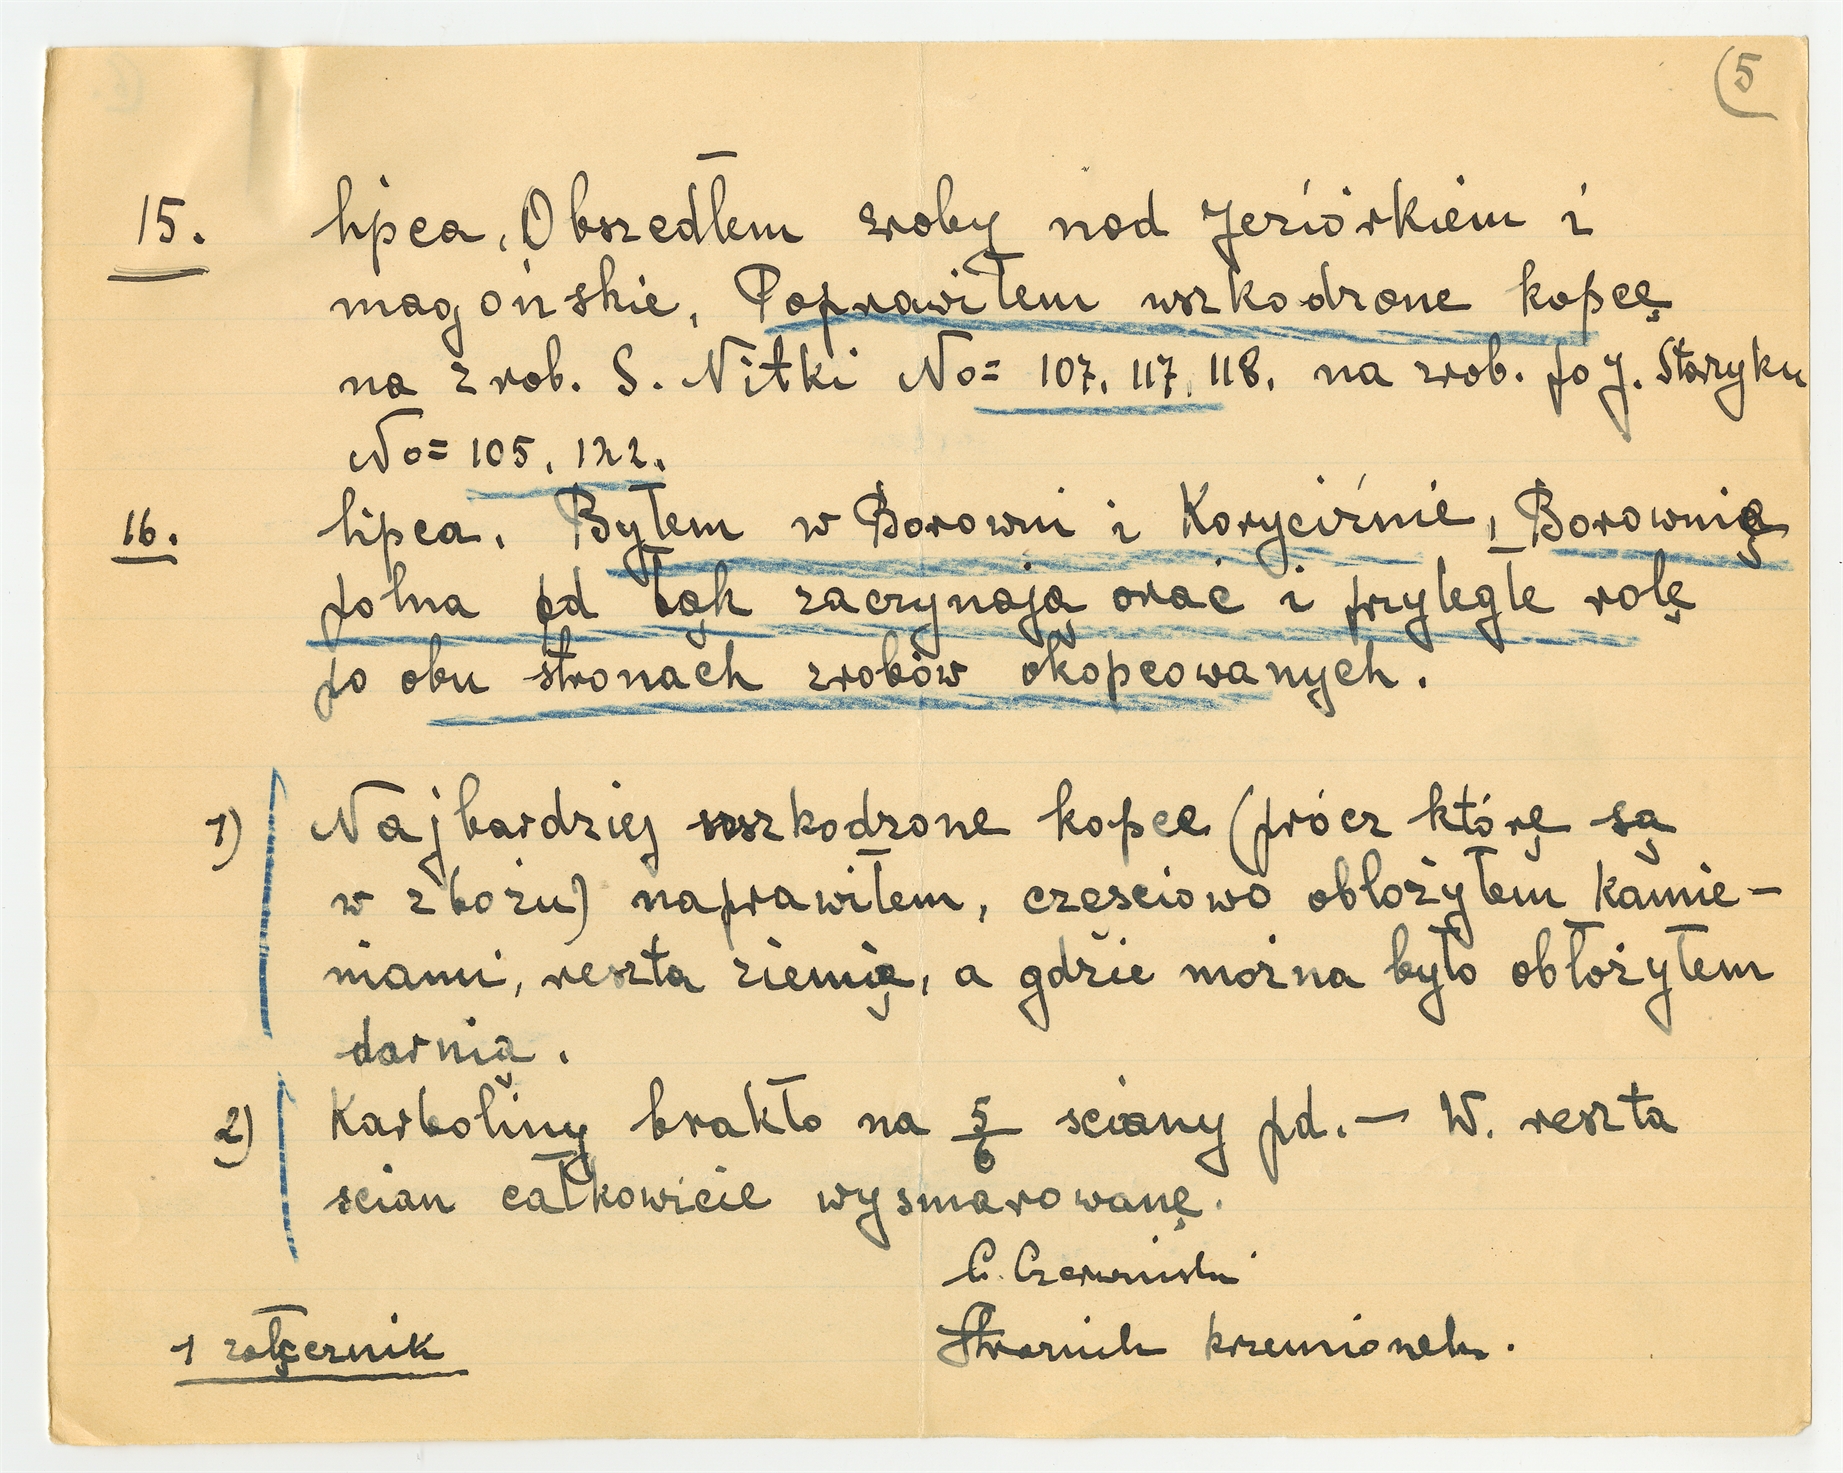 5
15. lipca, Obszedłem zroby nad Jeziórkiem i
magońskie, Poprawiłem uszkodzone kopcę
na zrob. S. Nitki No= 107, 117, 118, na zrob. po J. Staryku
No= 105, 122.
16. lipca. Byłem w Borowni i Koryciźnie, Borownię
polna pd łąk zaczynają orać i przyległe rolę
po obu stronach zrobów okopcowanych.
1) Najbardziej uszkodzone kopce (prócz którę są
w zbożu) naprawiłem, czesciowo obłożyłem kamie-
niami, reszta ziemią, a gdzie można było obłożyłem
darnią.
2) Karboliny brakło na 5/6 sciany pd.- W. reszta
scian całkowicie wysmarowanę.
C. Czerwiński
1 załącznik
Strażnik krzemionek.